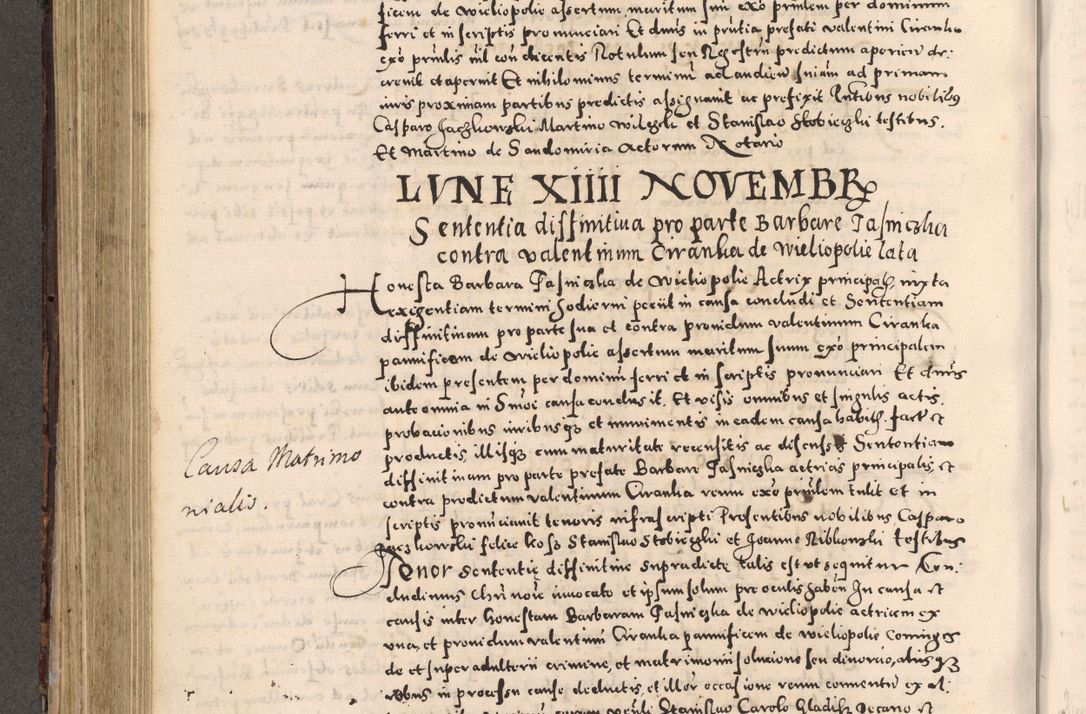 ficem de Wieliopolie assertum maritum suum exo prinlem per dominum
ferri et in scriptis pronunciari Et dnus in prutia prefati valentini Ciranka
exo prnlis nil con dicentis Rotulum seu Regestrum predictum aperien de:
crevit et aperuit Et nihilominus terminum ad audien sniam ad primam
iuris proximam partibus predictis assignavit ac prefixit Pntibus nobilibus
Casparo Jaczkowski Martino et Stanislao Stobieczki testibus.
Et Martino de Sandomiria Actorum Notario
LVNE XIIII NOVEMBR
Sententia diffinitiva pro parte Barbare Jasniczka
contra valentinum Ciranka de Wieliopolie lata
Honesta Barbara Jasniczka de Wieliopolie Actrix principalis iuxta
exigentiam termini hodierni petiit in causa concludi et Sententiam
diffinitivam pro parte sua et contra providum valentinum Ciranka
pannificem de Wieliopolie assertum maritum suum exo principalem
ibidem presentem per dominum ferri et in scriptis pronunciari Et dnus
ante omnia in Smoi causa conclusit. Et visis omnibus et singulis actis,
probacionibus iuribusq et munimentis in eadem causa habitis. fact et
productis, illisq cum maturitate recensitis ac discussis Sententiam
diffinitivam pro parte prefate Barbare Jasniczka actricis principalis, et
contra predictum valentinum Ciranka reum exo prinlem tulit et in
scriptis pronunciavit tenoris infrascripti Presentibus nobilibus, Casparo
Jaczkowski felice Stanislao Stobieczki et Joanne Ribkowski testibus
Tenor sententie diffinitive supradicte talis est ut sequitur
Chri noie invocato et ipsum solum pre oculis haben In causa et
causis inter honestam Barbaram Jasniczka de Wieliopolie actricem ex
una, et providum valentinum Ciranka pannificem de Wieliopolie
de et super adulterii crimine, et matrimonii solucione seu divorcio, aliisq
rebus in processu cause deductis, et illor occasione reum conventum ex al:
Stanislao Carolo Gladisz Decano et
Causa Matrimo
nialis.